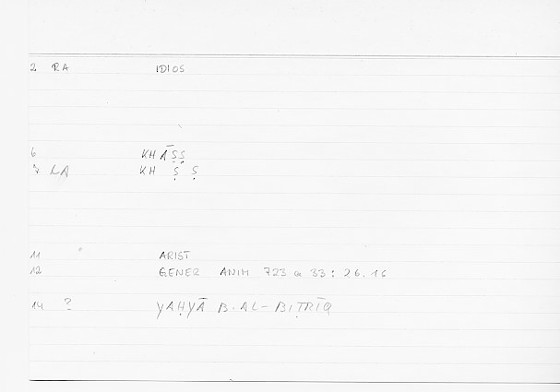 2 RA IDIOS
6 KHĀṢṢ
7 LA KH Ṣ Ṣ
11 " ARIST
12 GENER ANIM 723 a 33 : 26.16
14 ? YAḤYĀ B. AL-BIṬRĪQ